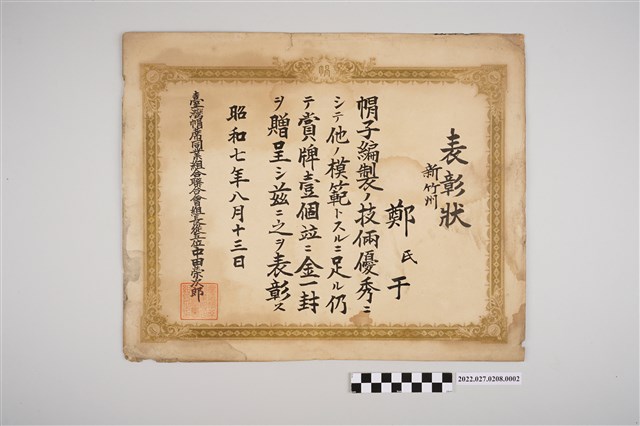 表彰狀
新竹州
鄭氏于
帽子編製ノ技倆優秀ニ
シテ他ノ模範トスルニ足ル仍
テ賞牌壹個竝ニ金一封
ヲ贈呈シ茲ニ之ヲ表彰ス
昭和七年八月十三日
臺灣帽蓆同業組合聯合會組長從五位中田榮次郎
2022.027.0208.0002